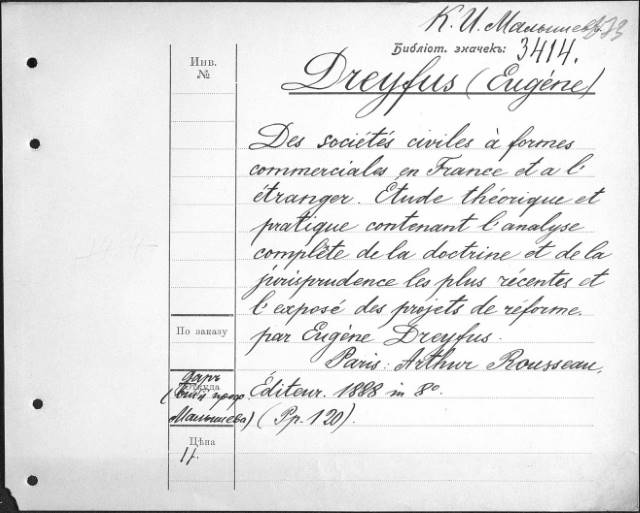 К. И. Малышева
Библіот. значекъ: 3414.
Инв.
№
Dreyfus (Eugène)
Des sociétés civiles à formes
commerciales en France et a l'
étranger. Étude théorique et
pratique contenant l'analyse
complète de la doctrine et de la
jurisprudence les plus récentes et
l'exposé des projets de réforme.
par Eugène Dreyfus.
Paris: Arthur Rousseau,
Éditeur. 1888 in 8º.
(Pp. 120).
По заказу
Откуда
даръ
проф.
Малышева)
Цѣна